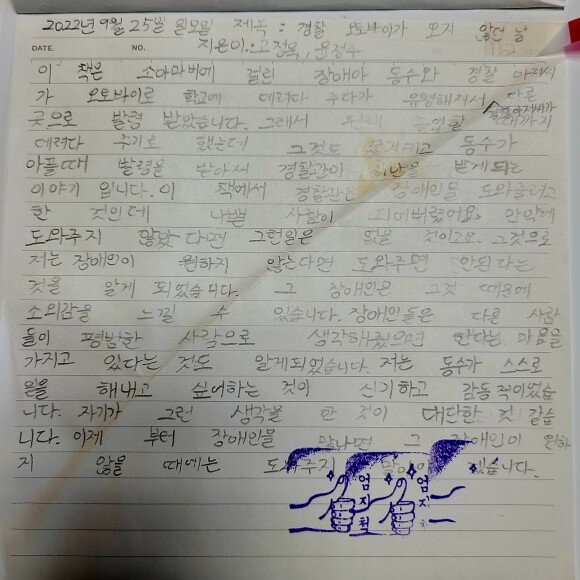 2022년 9월 25일 월요일 제목 : 경찰 오토바이가 오지 않던 날
DATE. NO. 지은이 : 고정욱, 윤정주
이 책은 소아마비에 걸린 장애아 동수와 경찰 아저씨
가 오토바이로 학교에 데려다 주다가 유명해져서 다른
곳으로 발령 받았습니다. 그래서 원래 졸업할 까지
데려다 주기로 했는데 그것도 동수가
아플때 발령을 받아서 경찰관이 비난을 받게되는
이야기 입니다. 이 책에서 경찰관은 장애인을 도와줄려고
한 것인데 나쁜 사람이 되어버렸어요. 만약에
도와주지 않았다면 그런일은 없을 것이고요. 그것으로
저는 장애인이 원하지 않는다면 도와주면 안된다는
것을 알게 되었습니다. 그 장애인은 그것 때문에
소외감을 느낄 수 있습니다. 장애인들은 다른 사람
들이 평범한 사람으로 생각해줬으면 한다는 마음을
가지고 있다는 것도 알게되었습니다. 저는 동수가 스스로
일을 해내고 싶어하는 것이 신기하고 감동적이었습
니다. 자기가 그런 생각을 한 것이 대단한 것 같습
니다. 이제 부터 장애인을 만나면 그 장애인이 원하
지 않을 때에는 도와주지 말아야 겠습니다.
엄지척 엄지